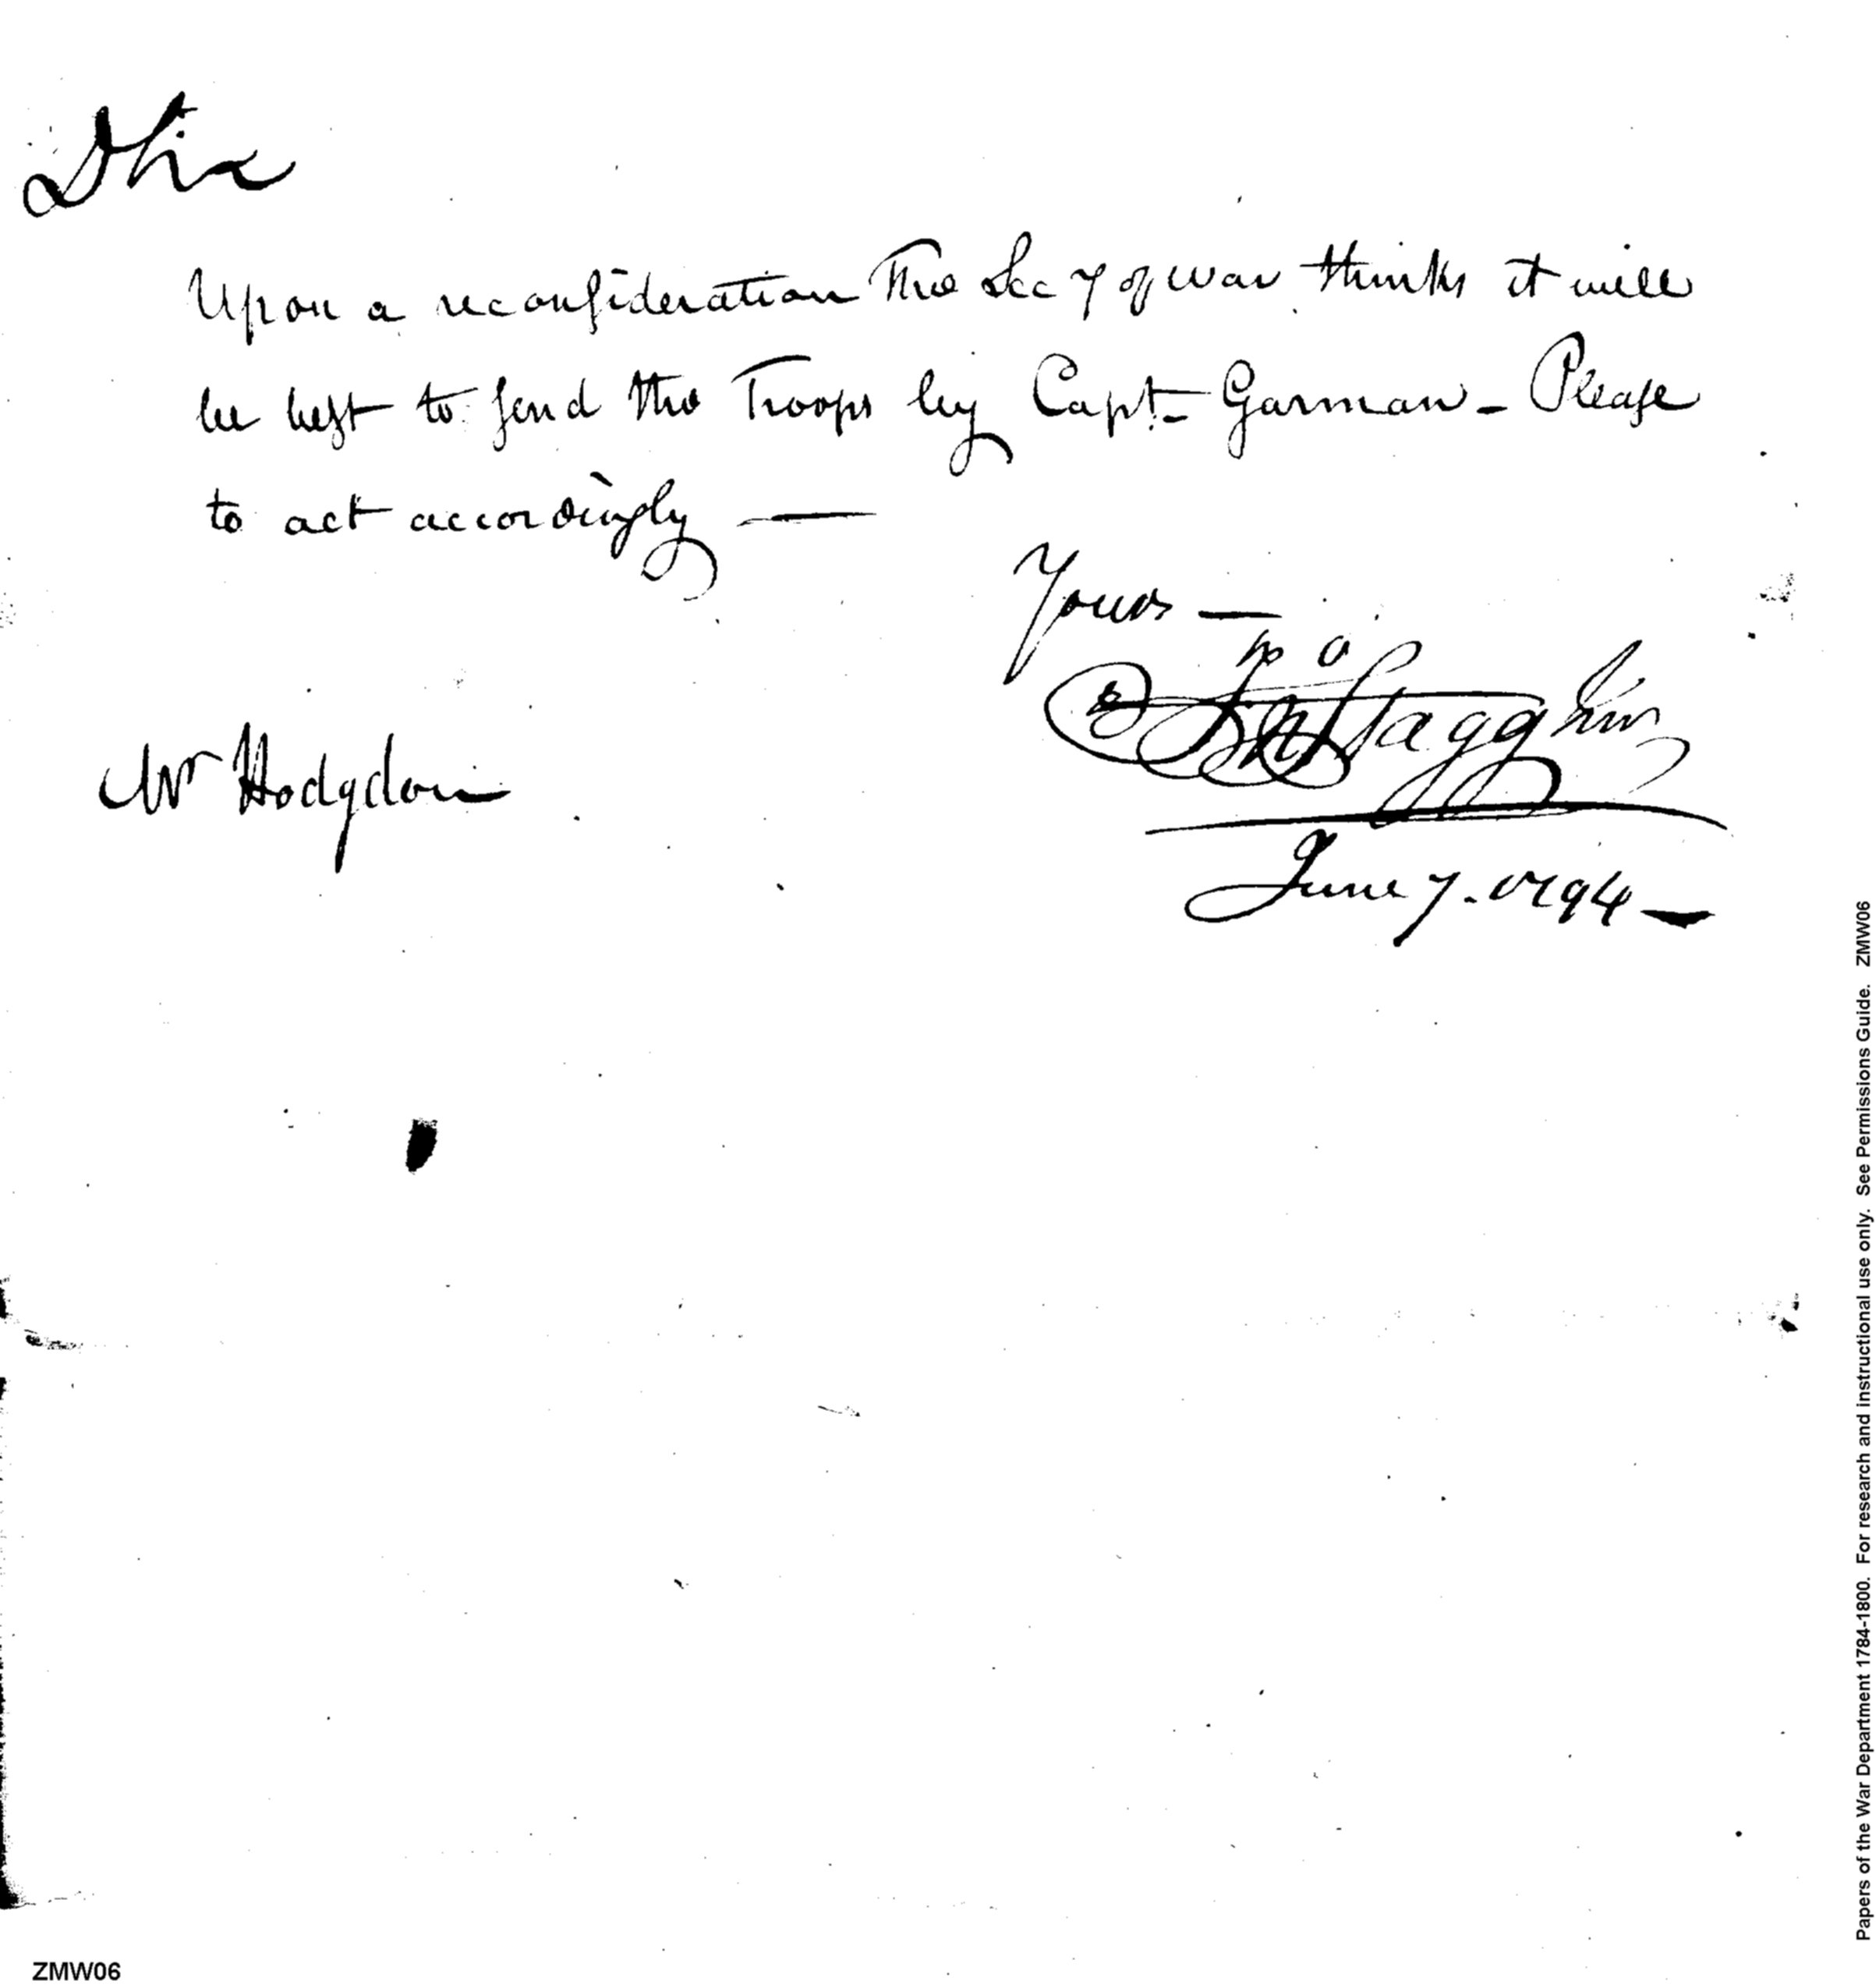 Sir
Upon a reconsideration the Secy of War thinks it will
be best to send the Troops by Capt. Garman - Please
to act accordingly —
Yours —
Jno Stagg Jun
Mr Hodgdon
June 7. 1794 —
Papers of the War Department 1784-1800. For research and instructional use only. See Permissions Guide. ZMW06
ZMW06